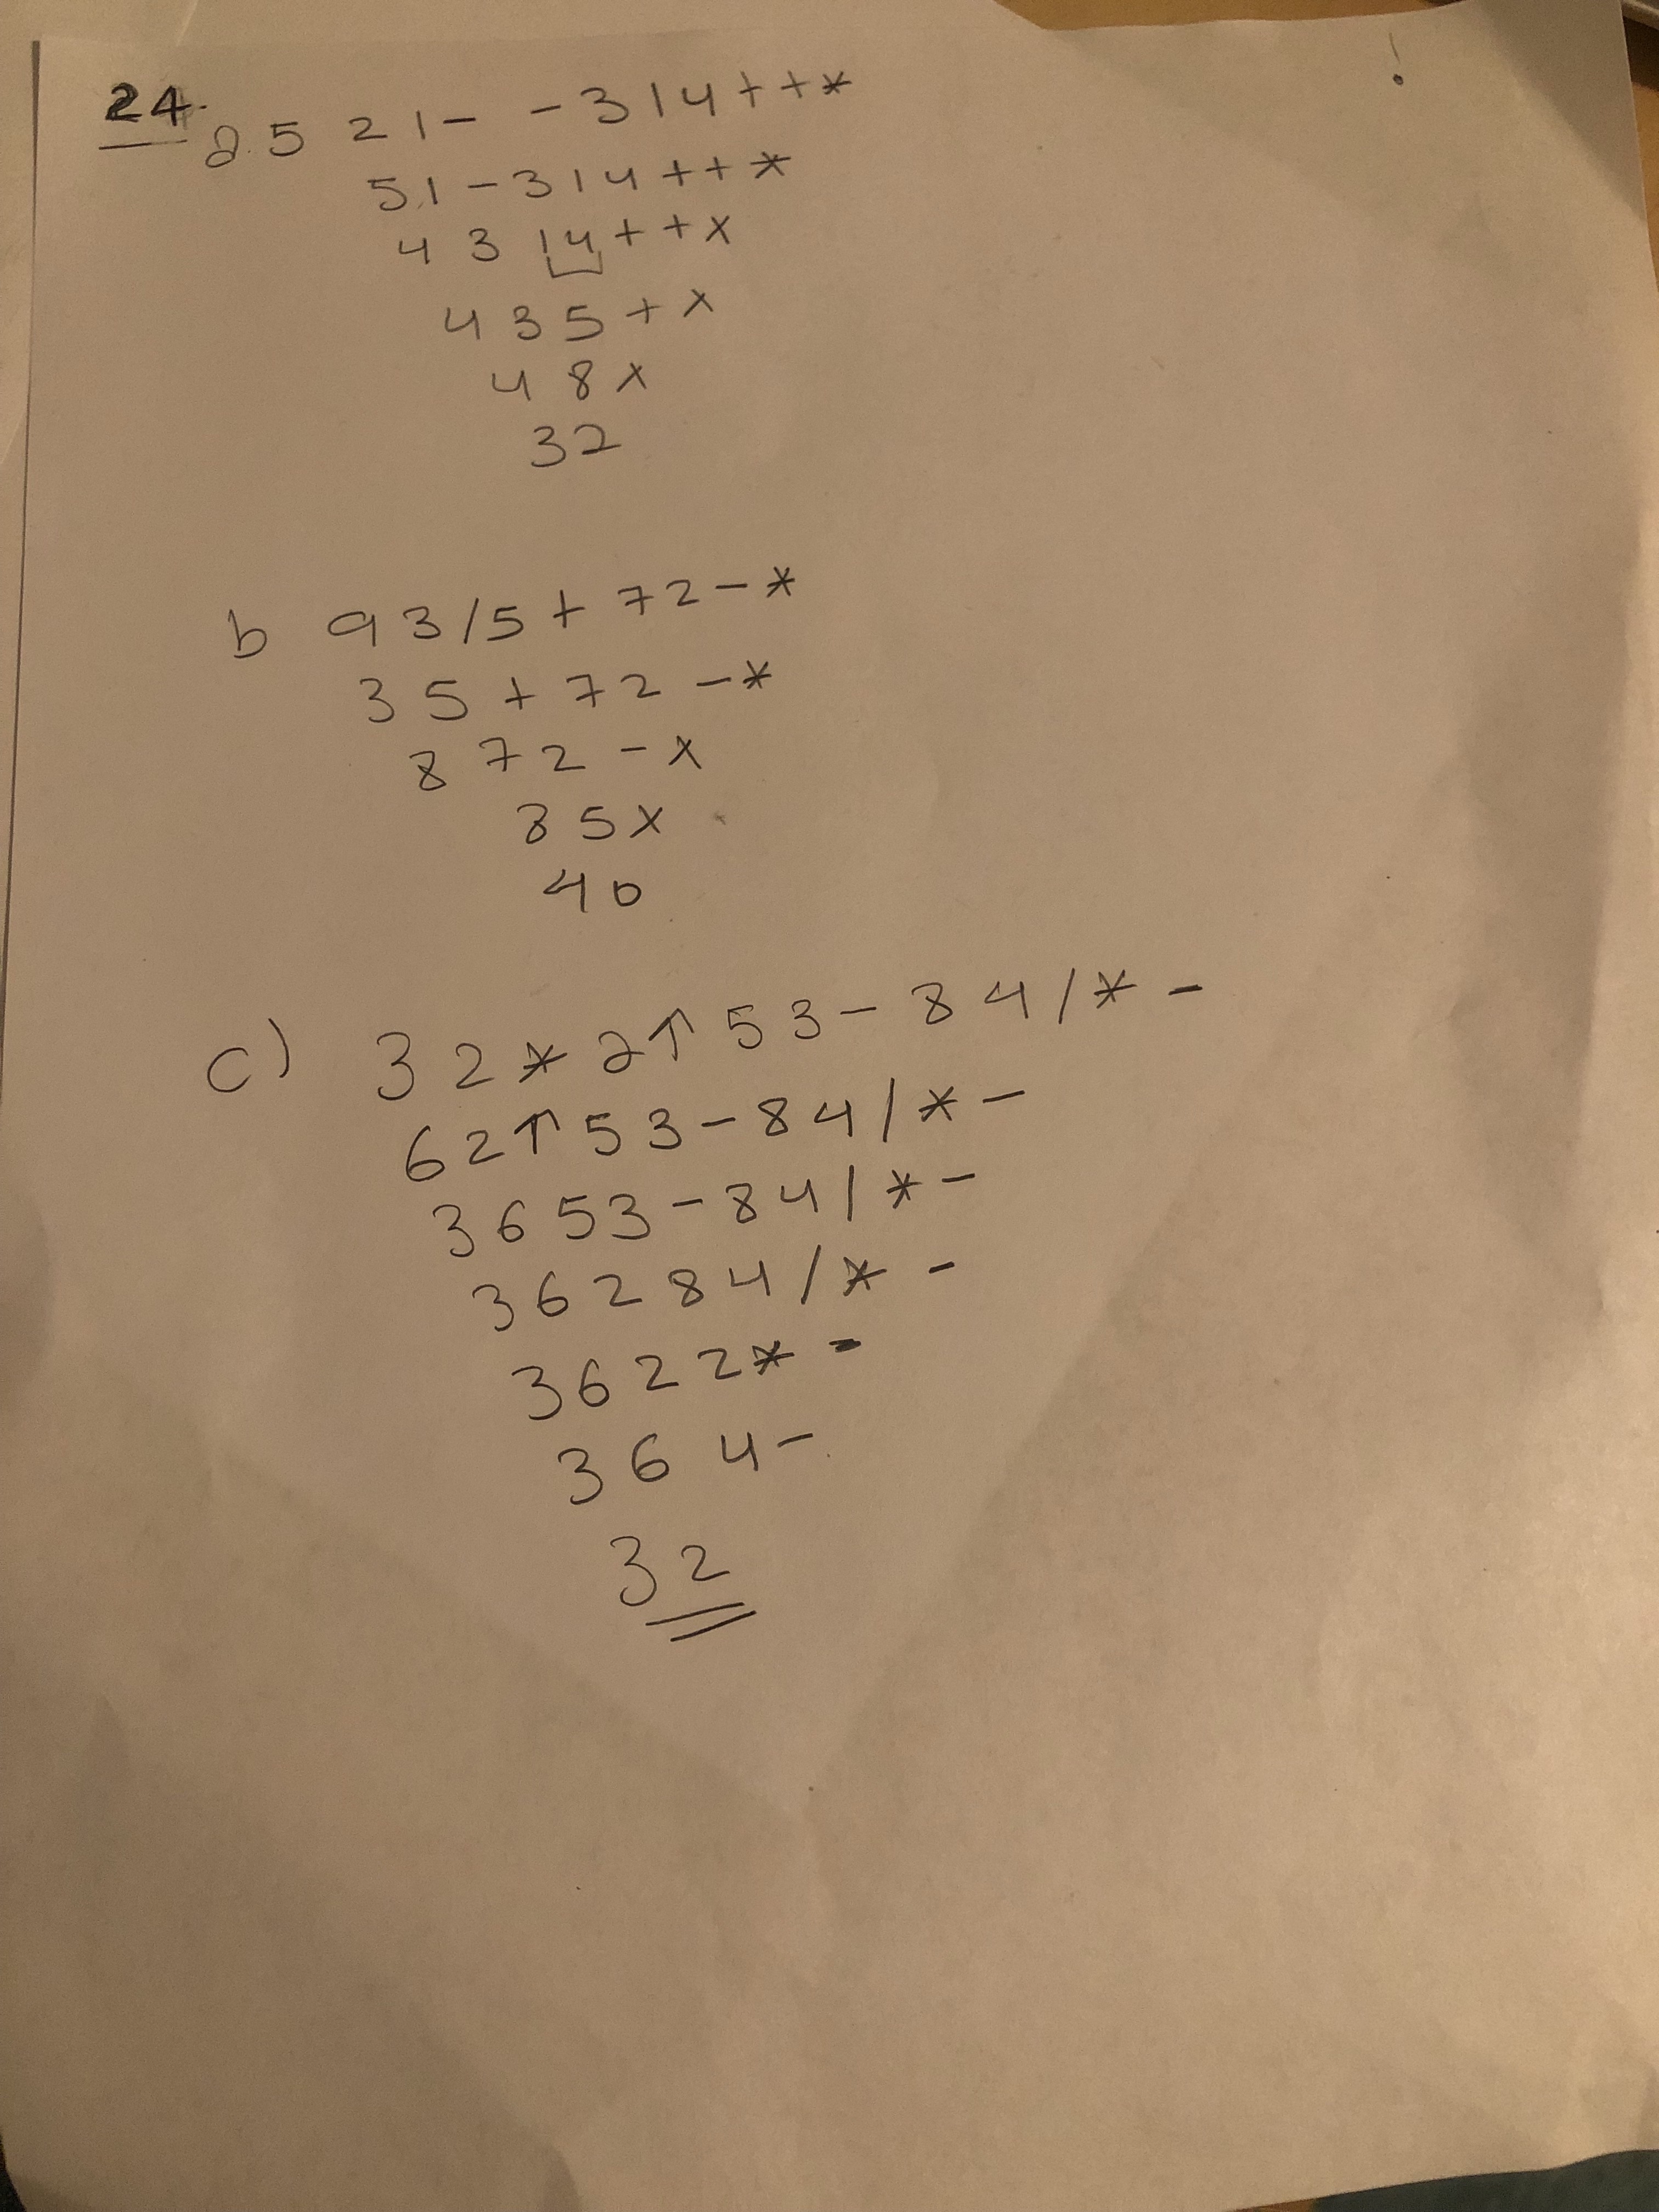 !
24. a. 5 2 1 - - 3 1 4 + + *
5 1 - 3 1 4 + + *
4 3 1 4 + + x
4 3 5 + x
4 8 x
32
b 9 3 / 5 + 7 2 - *
3 5 + 7 2 - *
8 7 2 - x
8 5 x
40
c) 3 2 * 2 ↑ 5 3 - 8 4 / * -
6 2 ↑ 5 3 - 8 4 / * -
36 5 3 - 8 4 / * -
36 2 8 4 / * -
36 2 2 * -
36 4 -
32